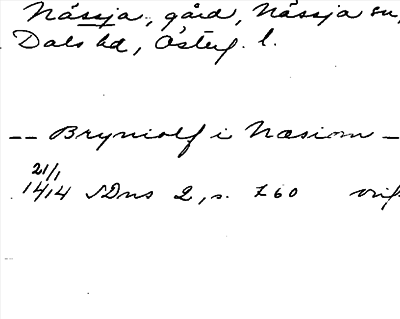 Nässja, gård, Nässja sn,
Dals hd, Österg. l.
-- Bryniolf i Næsiom -
21/1
1414 SDns 2, s. 760